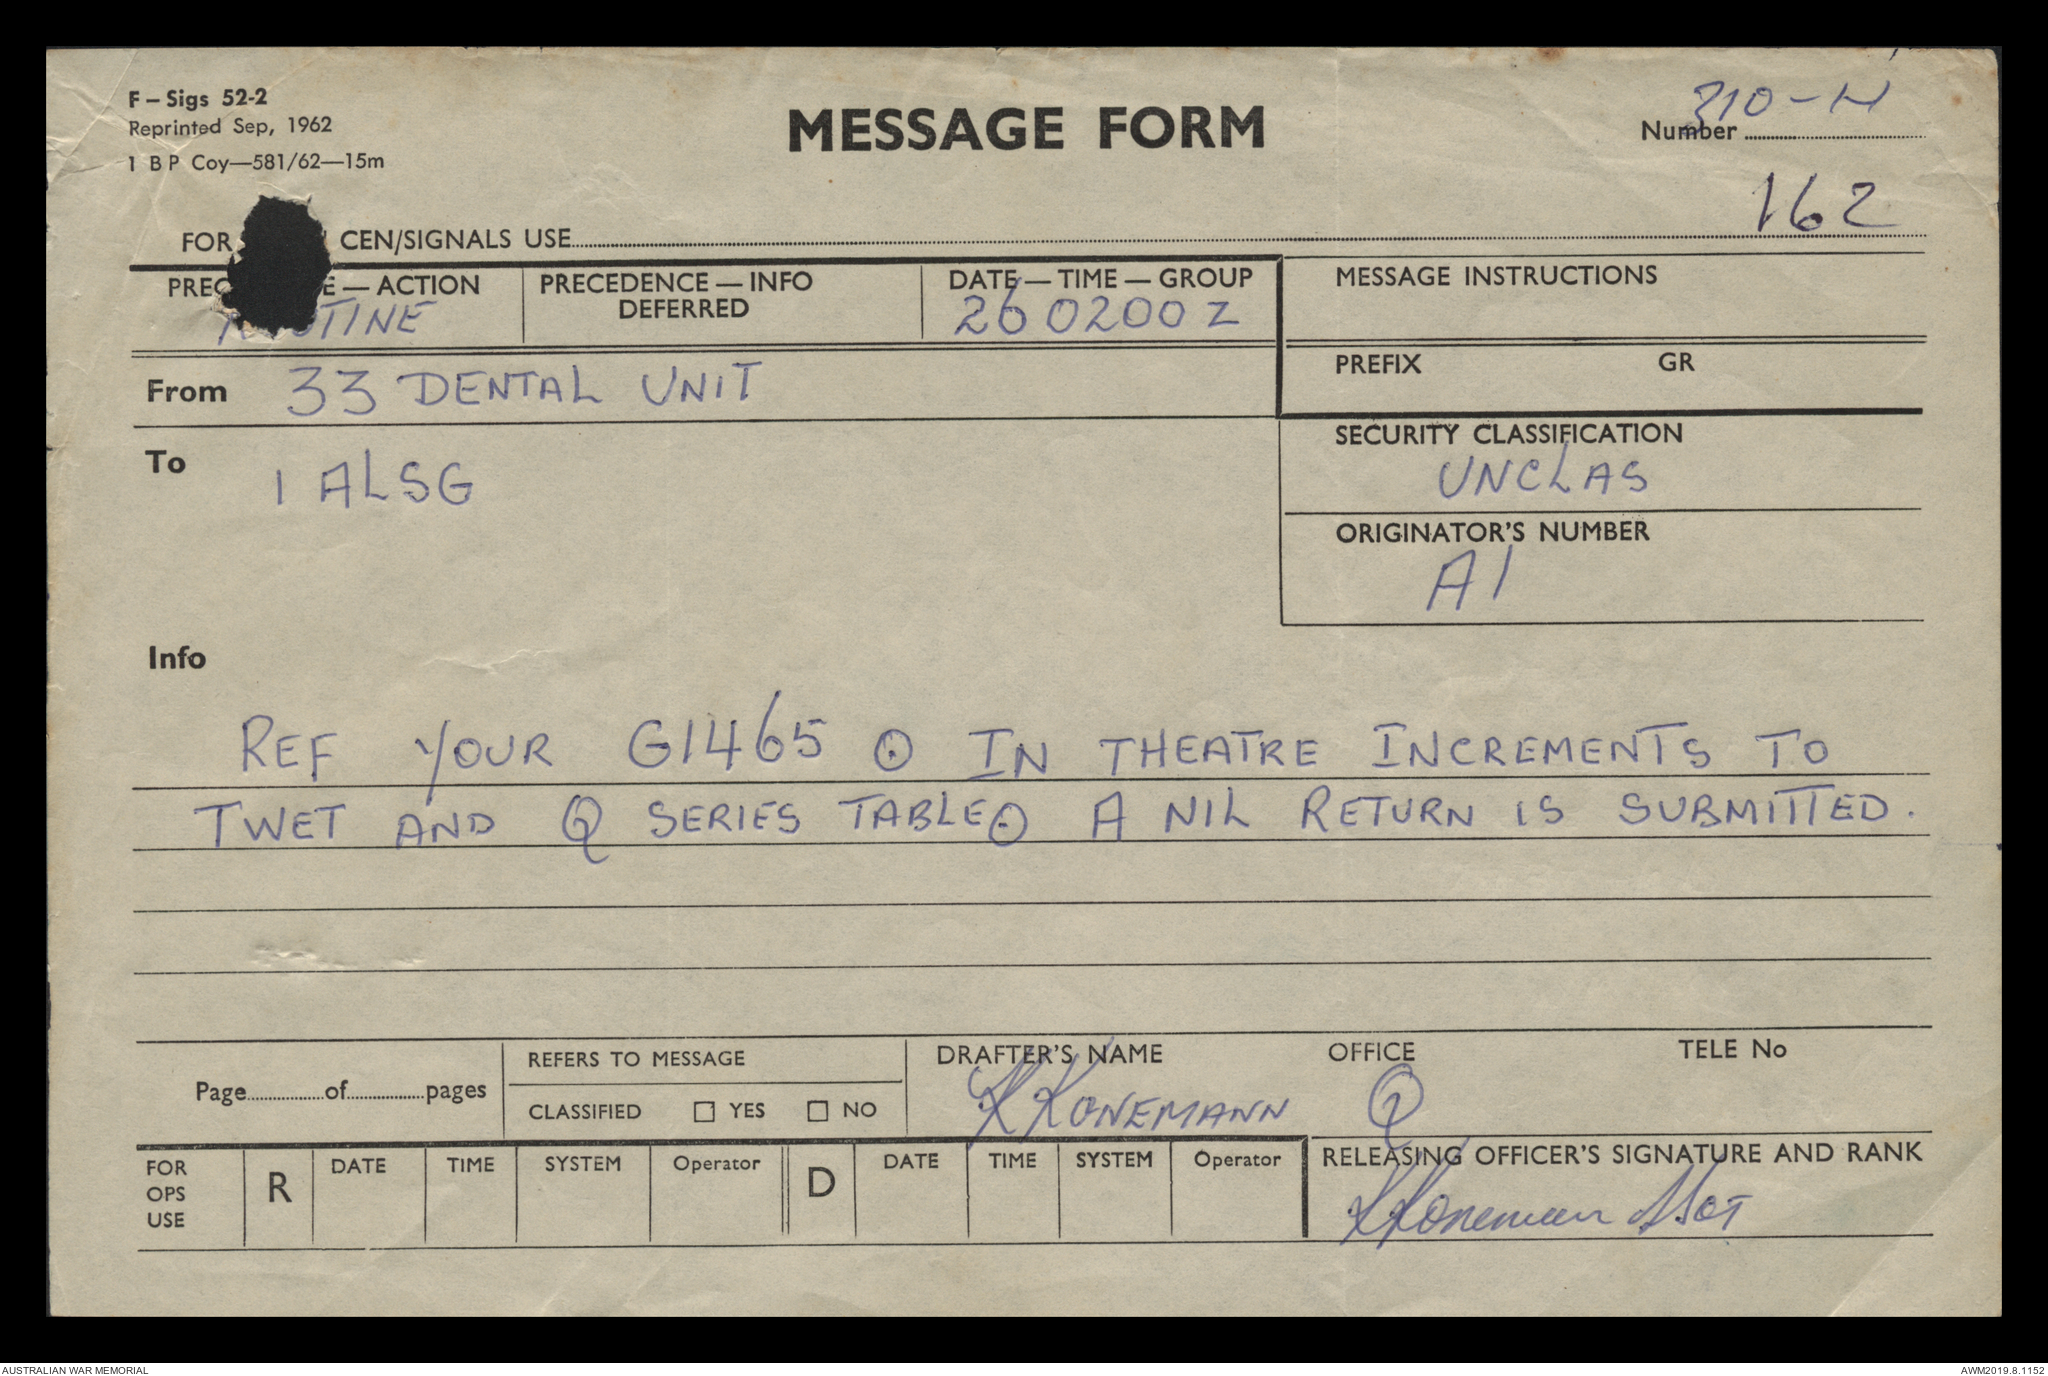 F – Sigs 52-2
Reprinted Sep, 1962
1 B P Coy—581/62—15m
MESSAGE FORM
310-H
Number
162
FOR CEN/SIGNALS USE
PREC E — ACTION
TINE
PRECEDENCE — INFO
DEFERRED
DATE — TIME — GROUP
260200Z
MESSAGE INSTRUCTIONS
PREFIX GR
From 33 DENTAL UNIT
To 1 ALSG
SECURITY CLASSIFICATION
UNCLAS
ORIGINATOR'S NUMBER
A1
Info
REF YOUR G1465 ⊙ IN THEATRE INCREMENTS TO
TWET AND Q SERIES TABLE⊙ A NIL RETURN IS SUBMITTED.
Page of pages
REFERS TO MESSAGE
CLASSIFIED ☐ YES ☐ NO
DRAFTER'S NAME
K KONEMANN
OFFICE
Q
TELE No
FOR
OPS
USE
R DATE TIME SYSTEM Operator
D DATE TIME SYSTEM Operator
RELEASING OFFICER'S SIGNATURE AND RANK
KKonemann
AUSTRALIAN WAR MEMORIAL
AWM2019.8.1152